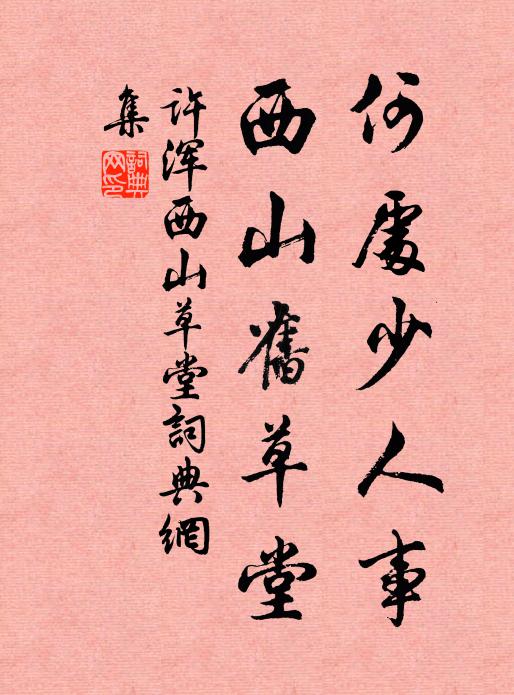 何處少人事
西山舊草堂
許渾西山草堂詞典網
集
詞典網印